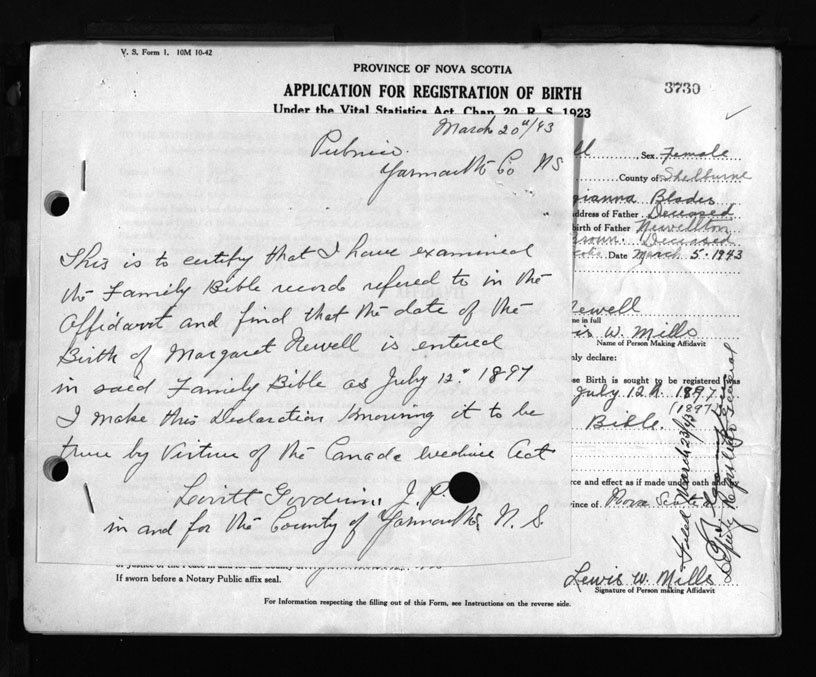 V. S. Form 1. 10M 10-42
PROVINCE OF NOVA SCOTIA
APPLICATION FOR REGISTRATION OF BIRTH
3730
Under the Vital Statistics Act, Chap. 20, R. S. 1923
March 20th/43
Pubnico
Yarmouth Co NS
This is to certify that I have examined
the Family Bible records refered to in the
Affidavit and find that the date of the
Birth of Margaret Newell is entered
in said Family Bible as July 12th 1897
I make this Declaration knowing it to be
true by Virtue of the Canada Evedince Act
Lovitt Goodwin J. P.
in and for the County of Yarmouth, N. S.
ll Sex Female
County of Shelburne
gianna Blades
address of Father Deceased
birth of Father Newellton
Deceased
Date March 5-1943
Newell
me in full
is W. Mills
Name of Person Making Affidavit
nly declare:
se Birth is sought to be registered was
July 12th 1897
(1897)
Bible.
rce and effect as if made under oath and
ince of Nova Scotia
Filed March 23/43
Deputy Registrar General
If sworn before a Notary Public affix seal.
Lewis W. Mills
Signature of Person making Affidavit
For Information respecting the filling out of this Form, see Instructions on the reverse side.